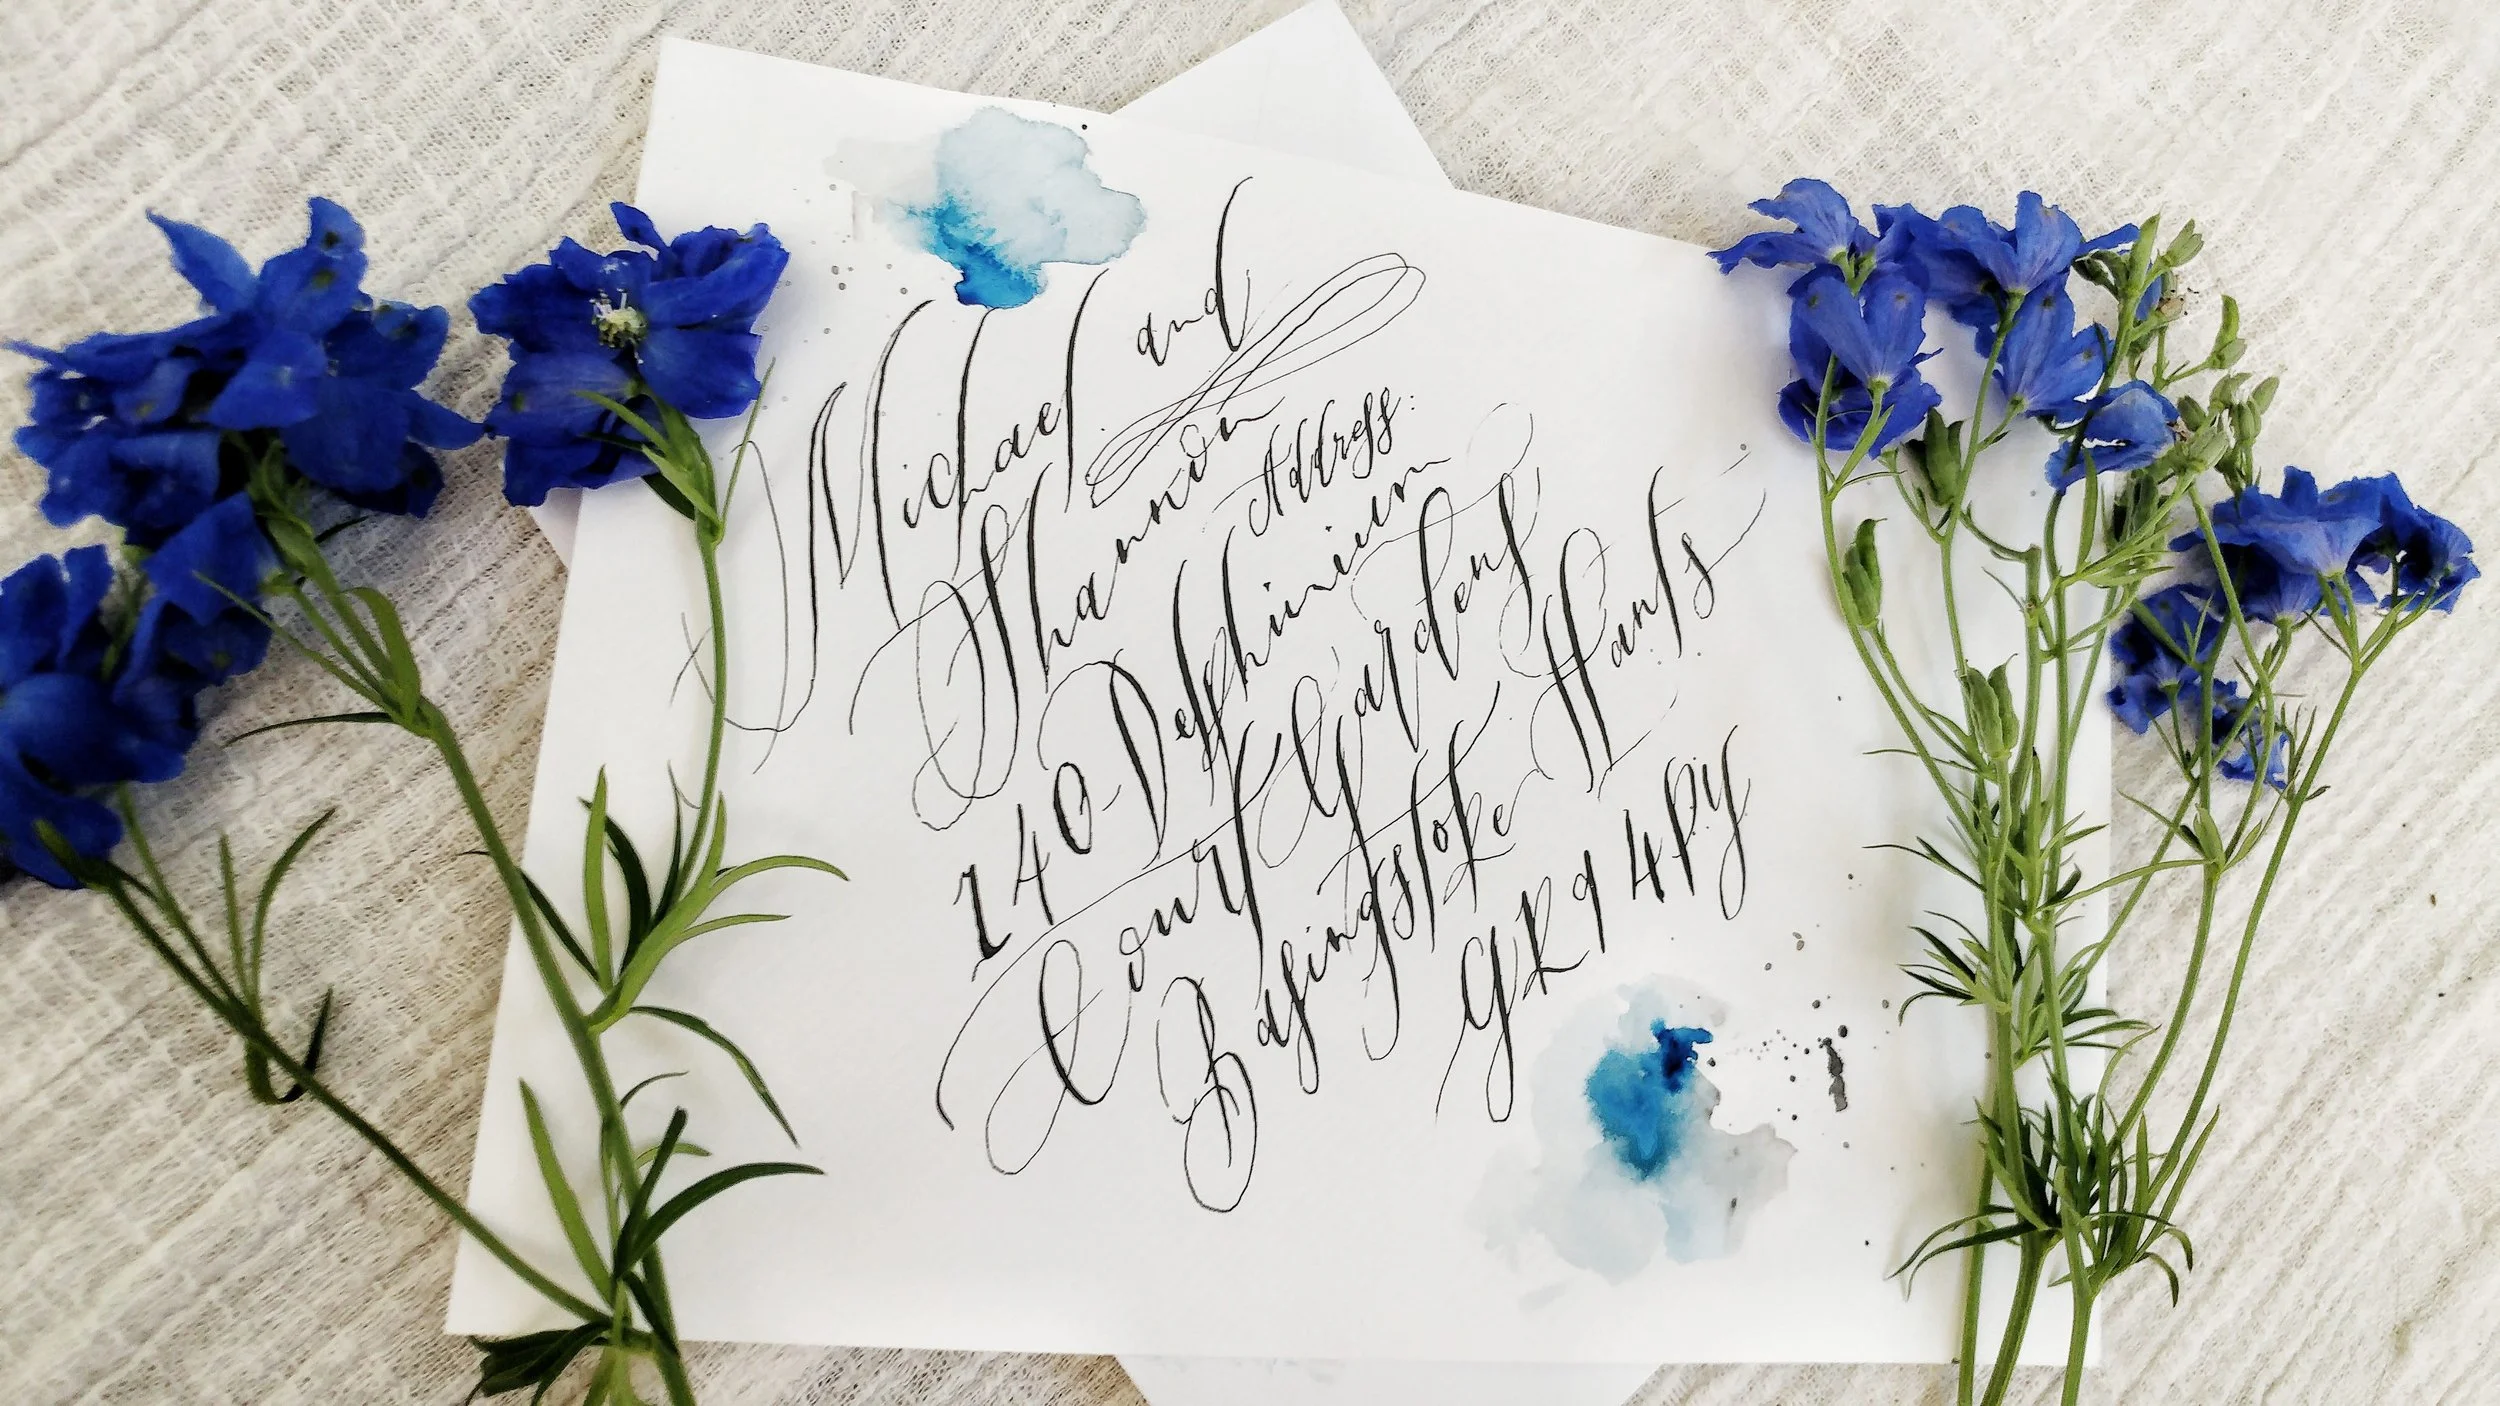 Michael and
Shannon
Address:
140 Delphinium
Court Gardens
Basingstoke Hants
GR9 4PY